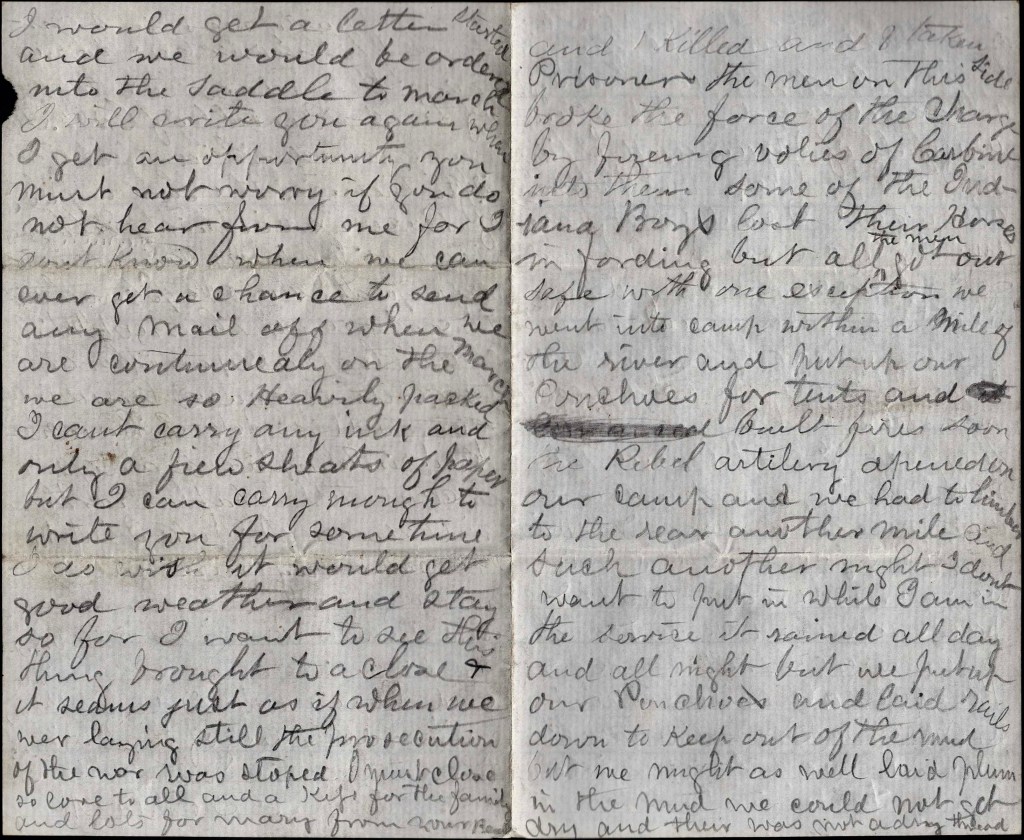 I would get a letter started
and we would be ordered
into the saddle to march
I will write you again when
I get an opportunity you
must not worry if you do
not hear from me for I
dont know when we can
ever get a chance to send
any mail off when we
are continuealy on the march
we are so Heavily packed
I cant carry any ink and
only a few sheats of paper
but I can carry enough to
write you for sometime
I do wish it would get
good weather and stay
so for I want to see this
thing brought to a close &
it seams just as if when we
wer laying still the prosecution
of the war was stoped I must close
so love to all and a Kiss for the family
and lots for mary from your
and 1 killed and 8 taken
Prisoners the men on this side
broke the force of the charge
by fireing volies of Carbine
into them some of the Ind-
iana Boys lost their Horses
in fording but all the men got out
safe with one exception we
went into camp within a mile of
the river and put up our
Ponchoes for tents and
built fires soon
the Rebel artilery opened on
our camp and we had to limber
to the rear another mile and
such another night I dont
want to put in while I am in
the service it rained all day
and all night but we put up
our Ponchoes and laid rails
down to keep out of the mud
but we might as well laid plum
in the mud we could not get
dry and their was not a dry thread